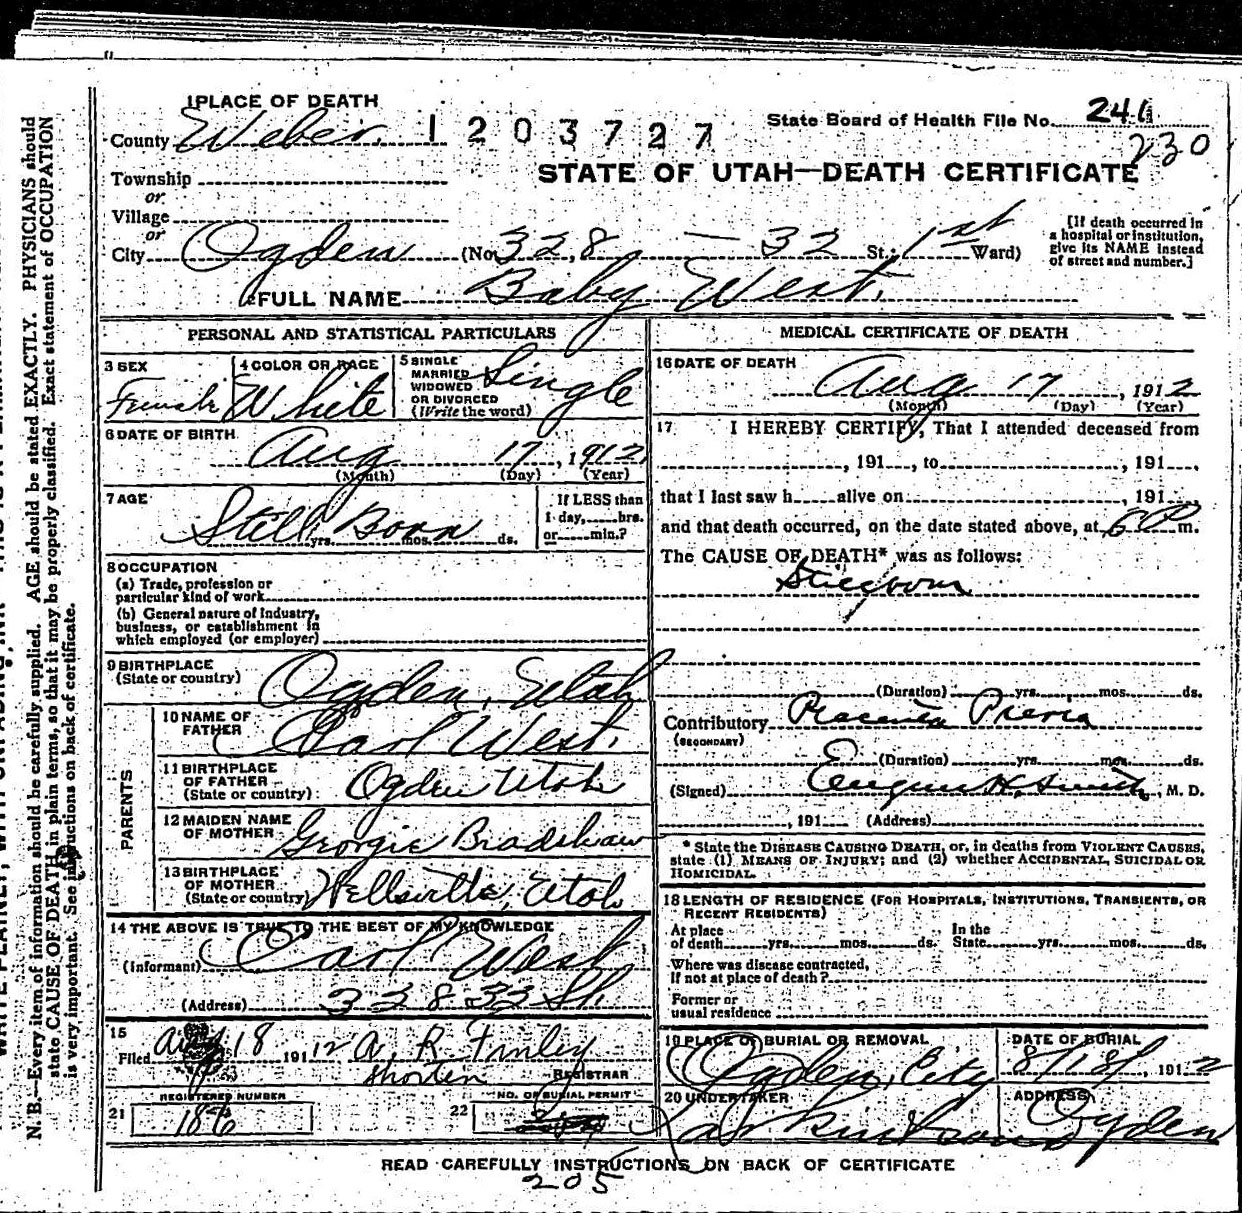 1 PLACE OF DEATH
County Weber. 1203727 State Board of Health File No. 246
230
Township
STATE OF UTAH—DEATH CERTIFICATE
or
Village
or
City Ogden (No. 328, — 32 St.; 1st Ward)
[If death occurred in a hospital or institution, give its NAME instead of street and number.]
2 FULL NAME Baby West.
PERSONAL AND STATISTICAL PARTICULARS
3 SEX Female
4 COLOR OR RACE White
5 SINGLE MARRIED WIDOWED OR DIVORCED (Write the word) Single
6 DATE OF BIRTH
Aug 17, 1912
(Month) (Day) (Year)
7 AGE
Still Born
yrs. mos. ds.
If LESS than
1 day, hrs.
or min.?
8 OCCUPATION
(a) Trade, profession or
particular kind of work
(b) General nature of Industry,
business, or establishment in
which employed (or employer)
9 BIRTHPLACE
(State or country) Ogden, Utah
PARENTS
10 NAME OF
FATHER Carl West.
11 BIRTHPLACE
OF FATHER
(State or country) Ogden Utah
12 MAIDEN NAME
OF MOTHER Georgie Bradshaw
13 BIRTHPLACE
OF MOTHER
(State or country) Wellsville, Utah
14 THE ABOVE IS TRUE TO THE BEST OF MY KNOWLEDGE
(Informant) Carl West
(Address) 328 32 St.
15
Filed Aug 18 1912 A. R. Finley
REGISTRAR
REGISTERED NUMBER
21 186
NO. OF BURIAL PERMIT
22
MEDICAL CERTIFICATE OF DEATH
16 DATE OF DEATH
Aug 17, 1912
(Month) (Day) (Year)
17 I HEREBY CERTIFY, That I attended deceased from
, 191 , to , 191 ,
that I last saw h alive on , 191 ,
and that death occurred, on the date stated above, at 6 P m.
The CAUSE OF DEATH* was as follows:
Stillborn
(Duration) yrs. mos. ds.
Contributory Placenta Previa
(SECONDARY)
(Duration) yrs. mos. ds.
(Signed) Eugene H. Smith, M. D.
, 191 (Address)
* State the DISEASE CAUSING DEATH, or, in deaths from VIOLENT CAUSES,
state (1) MEANS OF INJURY; and (2) whether ACCIDENTAL, SUICIDAL OR
HOMICIDAL.
18 LENGTH OF RESIDENCE (FOR HOSPITALS, INSTITUTIONS, TRANSIENTS, OR
RECENT RESIDENTS)
At place
of death yrs. mos. ds.
In the
State yrs. mos. ds.
Where was disease contracted,
If not at place of death?
Former or
usual residence
19 PLACE OF BURIAL OR REMOVAL
Ogden, City
DATE OF BURIAL
8/18/, 1912
20 UNDERTAKER
ADDRESS
Ogden
READ CAREFULLY INSTRUCTIONS ON BACK OF CERTIFICATE
205
N. B.—Every item of information should be carefully supplied. AGE should be stated EXACTLY. PHYSICIANS should
state CAUSE OF DEATH in plain terms, so that it may be properly classified. Exact statement of OCCUPATION
is very important. See instructions on back of certificate.